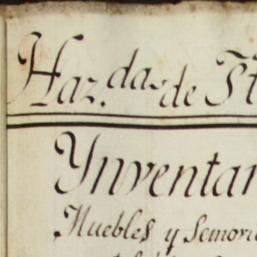 Haz.das de St
Ynventar
Muebles y Semovie